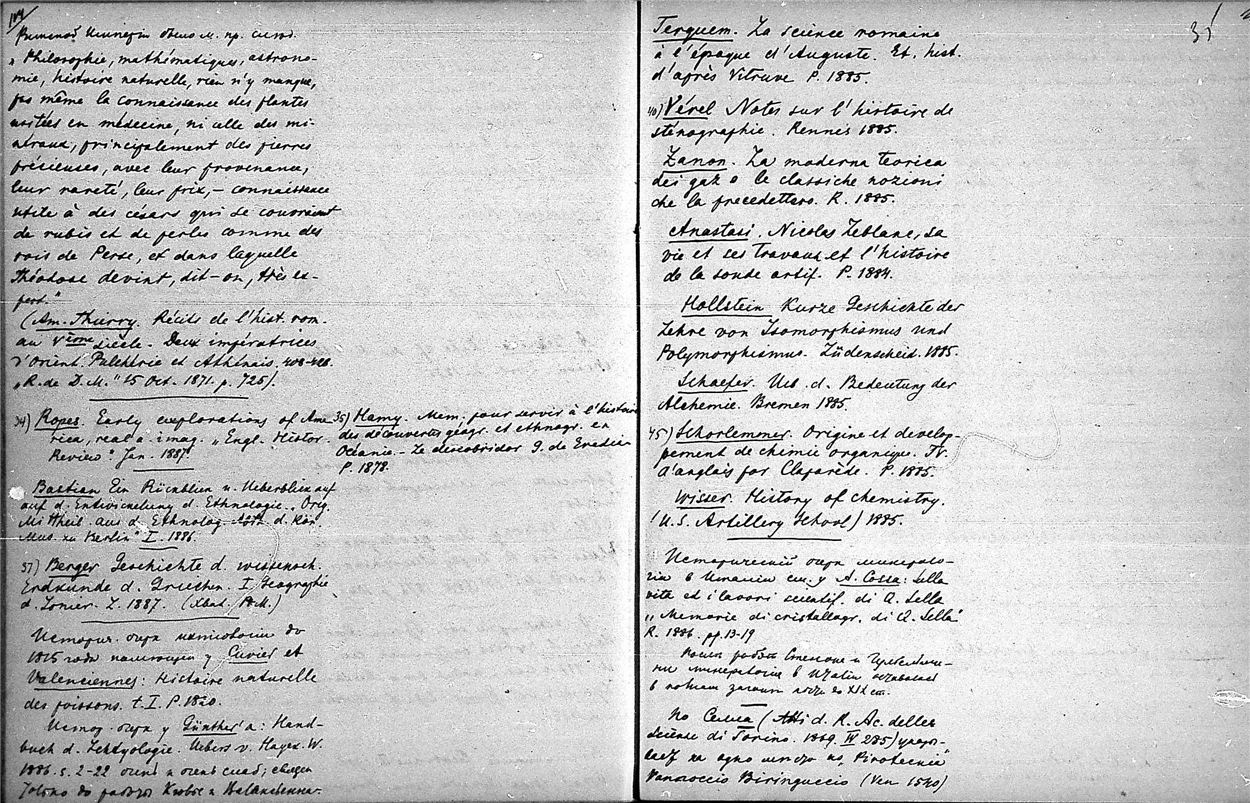 104
„Philosophie, mathématiques, astrono-
mie, histoire naturelle, rien n'y manque,
pas même la connaissance des plantes
usitées en médecine, ni celle des mi-
néraux, principalement des pierres
précieuses, avec leur provenance,
leur rareté, leur prix, — connaissance
utile à des césars qui se couvraient
de rubis et de perles comme des
rois de Perse, et dans laquelle
Théodose devint, dit-on, très ex-
pert."
(Am. Thierry. Récits de l'hist. rom.
au Vème siècle. Deux impératrices
d'Orient. Pulchérie et Athénais. 408-
„R. de D. M." 15 Oct. 1871. p. 725).
34) Ropes. Early explorations of Ame-
rica, real a. imag. „Engl. Histor.
Review" Jan. 1887.
35) Hamy. Mem. pour servir à l'histoire
des découvertes géogr. et ethnogr. en
Océanie. – Le descobridor G. de Eredia
P. 1878.
Bastian Ein Rückblick u. Ueberblick auf
auf d. Entwickelung d. Ethnologie. „Orig.
Mittheil. aus d. Ethnolog. Abth. d. Kön.
Mus. zu Berlin" I. 1886.
37) Berger Geschichte d. wissensch.
Erdkunde d. Griechen. I. Geographie
d. Ionier. L. 1887.
Историч. очерк ихтиологии до
1815 года у Cuvier et
Valenciennes: Histoire naturelle
des poissons. t. I. P. 1820.
Истор. очерк у Günther'а: Hand-
buch d. Ichthyologie. Uebers v. Hayek. W.
1886. s. 2-22 очень и очень слаб;
35
Terquem. La science romaine
à l'époque d'Auguste. Et. hist.
d'après Vitruve P. 1885.
40) Vérel Notes sur l'histoire de
sténographie. Rennes 1885.
Zanon. La moderna teorica
dei gaz e le classiche nozioni
che la precedettero. R. 1885.
Anastasi. Nicolas Leblanc, sa
vie et ses travaux et l'histoire
de la soude artif. P. 1884.
Hollstein Kurze Geschichte der
Lehre von Isomorphismus und
Polymorphismus. Lüdenscheid. 1885.
Schaefer. Ueb. d. Bedeutung der
Alchemie. Bremen 1885.
45) Schorlemmer. Origine et develop-
pement de chimie organique. Tr.
d'anglais par Claparède. P. 1885.
Wisser. History of chemistry.
(U.S. Artillery School) 1885.
Исторический очерк минерало-
гии в Италии см. у A. Cossa: Sulla
vita ed i lavori scientif. di Q. Sella
„Memorie di cristallogr. di Q. Sella"
R. 1886. pp. 13-19
По Селла (Atti d. R. Ac. delle
Scienze di Torino. 1869. IV 285)
Vannoccio Biringuccio (Ven 1540)